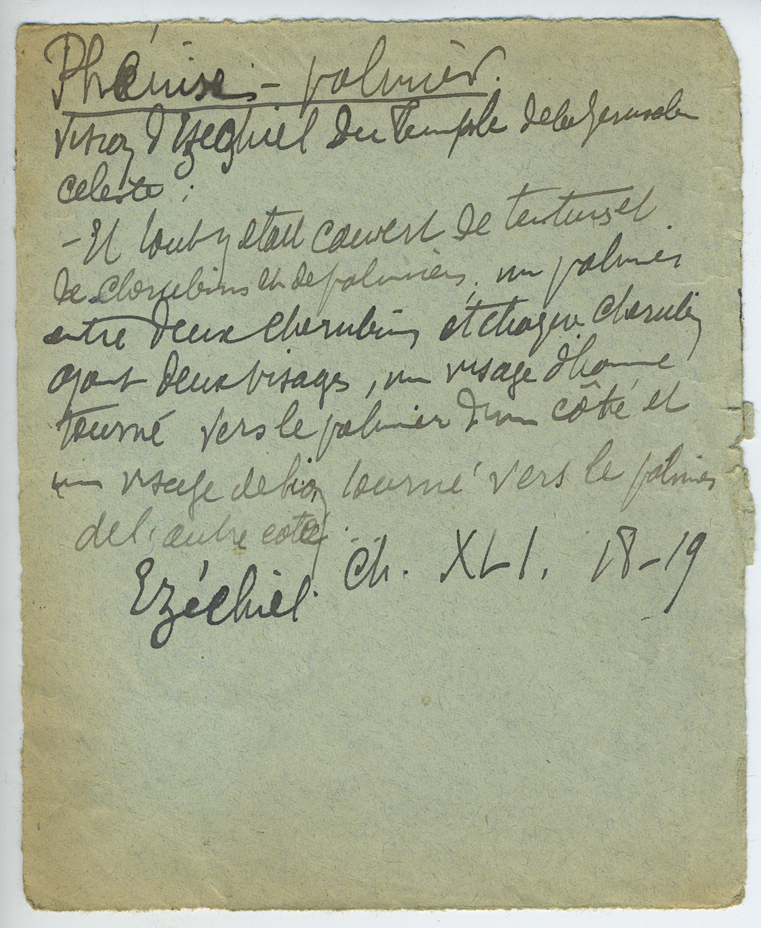 Phénix - palmier.
Vision d'Ezéqhiel du Temple de la Jerusalem
celeste :
- Et tout y était couvert de tentures et
de cherubins et de palmiers, un palmier
entre deux cherubins et chaque cherubin
ayant deux visages, un visage d'homme
tourné vers le palmier d'un côté et
un visage de lion tourné vers le palmier
de l'autre coté.
Ezéchiel Ch. XLI. 18-19